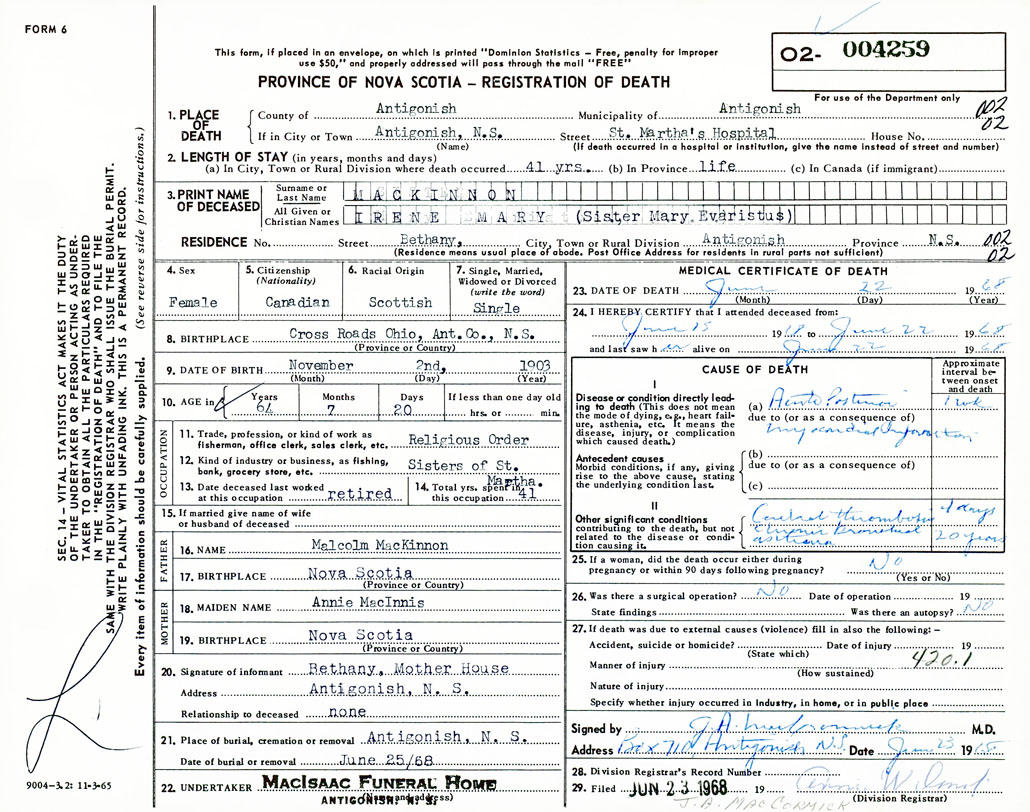 FORM 6
O2- 004259
For use of the Department only
This form, if placed in an envelope, on which is printed "Dominion Statistics – Free, penalty for improper
use $50," and properly addressed will pass through the mail "FREE"
PROVINCE OF NOVA SCOTIA – REGISTRATION OF DEATH
1. PLACE OF DEATH
County of Antigonish Municipality of Antigonish 002
If in City or Town Antigonish, N.S. Street St. Martha's Hospital House No. 02
(Name) (If death occurred in a hospital or institution, give the name instead of street and number)
2. LENGTH OF STAY (in years, months and days)
(a) In City, Town or Rural Division where death occurred 41 yrs. (b) In Province life (c) In Canada (if immigrant)
3. PRINT NAME OF DECEASED
Surname or Last Name MACKINNON
All Given or Christian Names IRENE MARY (Sister Mary Evaristus)
RESIDENCE No. Street Bethany, City, Town or Rural Division Antigonish Province N.S. 002
(Residence means usual place of abode. Post Office Address for residents in rural parts not sufficient) 02
4. Sex Female
5. Citizenship (Nationality) Canadian
6. Racial Origin Scottish
7. Single, Married, Widowed or Divorced (write the word) Single
8. BIRTHPLACE Cross Roads Ohio, Ant.Co., N.S.
(Province or Country)
9. DATE OF BIRTH November 2nd, 1903
(Month) (Day) (Year)
10. AGE in Years 64 Months 7 Days 20 If less than one day old hrs. or min.
OCCUPATION
11. Trade, profession, or kind of work as fisherman, office clerk, sales clerk, etc. Religious Order
12. Kind of industry or business, as fishing, bank, grocery store, etc. Sisters of St. Martha.
13. Date deceased last worked at this occupation retired
14. Total yrs. spent in this occupation 41
15. If married give name of wife or husband of deceased
FATHER
16. NAME Malcolm MacKinnon
17. BIRTHPLACE Nova Scotia
(Province or Country)
MOTHER
18. MAIDEN NAME Annie MacInnis
19. BIRTHPLACE Nova Scotia
(Province or Country)
20. Signature of informant Bethany, Mother House
Address Antigonish, N. S.
Relationship to deceased none
21. Place of burial, cremation or removal Antigonish, N. S.
Date of burial or removal June 25/68
22. UNDERTAKER MacIsaac Funeral Home
ANTIGONISH, N. S.
MEDICAL CERTIFICATE OF DEATH
23. DATE OF DEATH June 22 1968
(Month) (Day) (Year)
24. I HEREBY CERTIFY that I attended deceased from:
June 15 1968 to June 22 1968
and last saw her alive on June 22 1968
CAUSE OF DEATH
Approximate interval between onset and death
I
Disease or condition directly leading to death (This does not mean the mode of dying, e.g., heart failure, asthenia, etc. It means the disease, injury, or complication which caused death.)
(a) Acute Posterior 1 wk
due to (or as a consequence of)
myocardial infarction
Antecedent causes
Morbid conditions, if any, giving rise to the above cause, stating the underlying condition last.
(b)
due to (or as a consequence of)
(c)
II
Other significant conditions contributing to the death, but not related to the disease or condition causing it.
Cerebral thrombosis 4 days
Chronic Bronchial
asthma 20 years
25. If a woman, did the death occur either during pregnancy or within 90 days following pregnancy? No
(Yes or No)
26. Was there a surgical operation? No Date of operation 19
State findings Was there an autopsy? No
27. If death was due to external causes (violence) fill in also the following: –
Accident, suicide or homicide? Date of injury 19
(State which) 420.1
Manner of injury
(How sustained)
Nature of injury
Specify whether injury occurred in industry, in home, or in public place
Signed by J.A. MacCormick M.D.
Address Box 710 Antigonish N.S. Date June 23 1968
28. Division Registrar's Record Number
29. Filed JUN 23 1968 19
(Division Registrar)
J.A. MACCORMICK
SEC. 14 – VITAL STATISTICS ACT MAKES IT THE DUTY
OF THE UNDERTAKER OR PERSON ACTING AS UNDER-
TAKER TO OBTAIN ALL THE PARTICULARS REQUIRED
IN THE "REGISTRATION OF DEATH" AND TO FILE THE
SAME WITH THE DIVISION REGISTRAR WHO SHALL ISSUE THE BURIAL PERMIT.
WRITE PLAINLY WITH UNFADING INK. THIS IS A PERMANENT RECORD.
Every item of information should be carefully supplied. (See reverse side for instructions.)
9004-3.2: 11-3-65